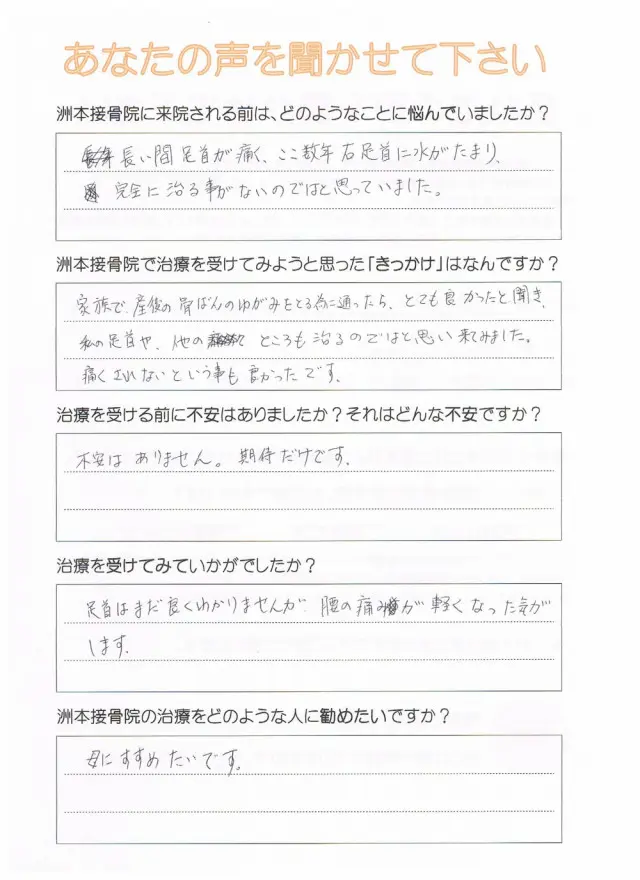 あなたの声を聞かせて下さい
洲本接骨院に来院される前は、どのようなことに悩んでいましたか？
長い間足首が痛く、ここ数年右足首に水がたまり、
完全に治る事がないのではと思っていました。
洲本接骨院で治療を受けてみようと思った「きっかけ」はなんですか？
家族で、産後の骨ばんのゆがみをとる為に通ったら、とても良かったと聞き、
私の足首や、他のところも治るのではと思い来てみました。
痛くされないという事も良かったです。
治療を受ける前に不安はありましたか？それはどんな不安ですか？
不安はありません。期待だけです。
治療を受けてみていかがでしたか？
足首はまだ良くわかりませんが、腰の痛みが軽くなった気が
します。
洲本接骨院の治療をどのような人に勧めたいですか？
母にすすめたいです。